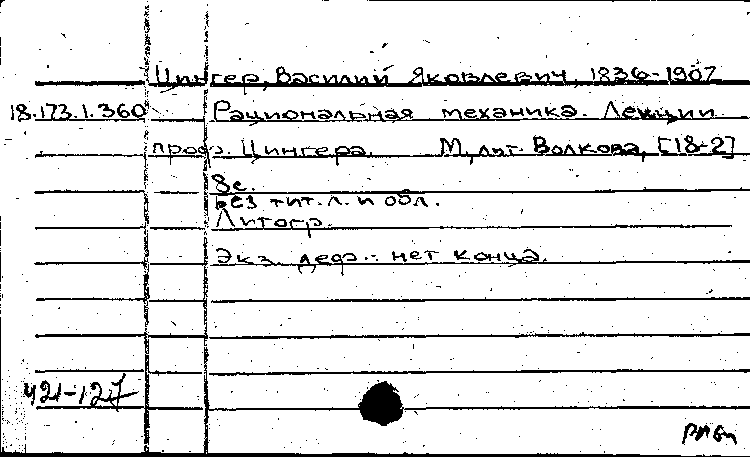 Цингер, Василий Яковлевич, 1836-1907
18.173.1.360 Рациональная механика. Лекции
проф. Цингера. М, лит. Волкова, [18-2]
8с.
Без тит. л. и обл.
Литогр.
Экз. деф.: нет конца.
421-127